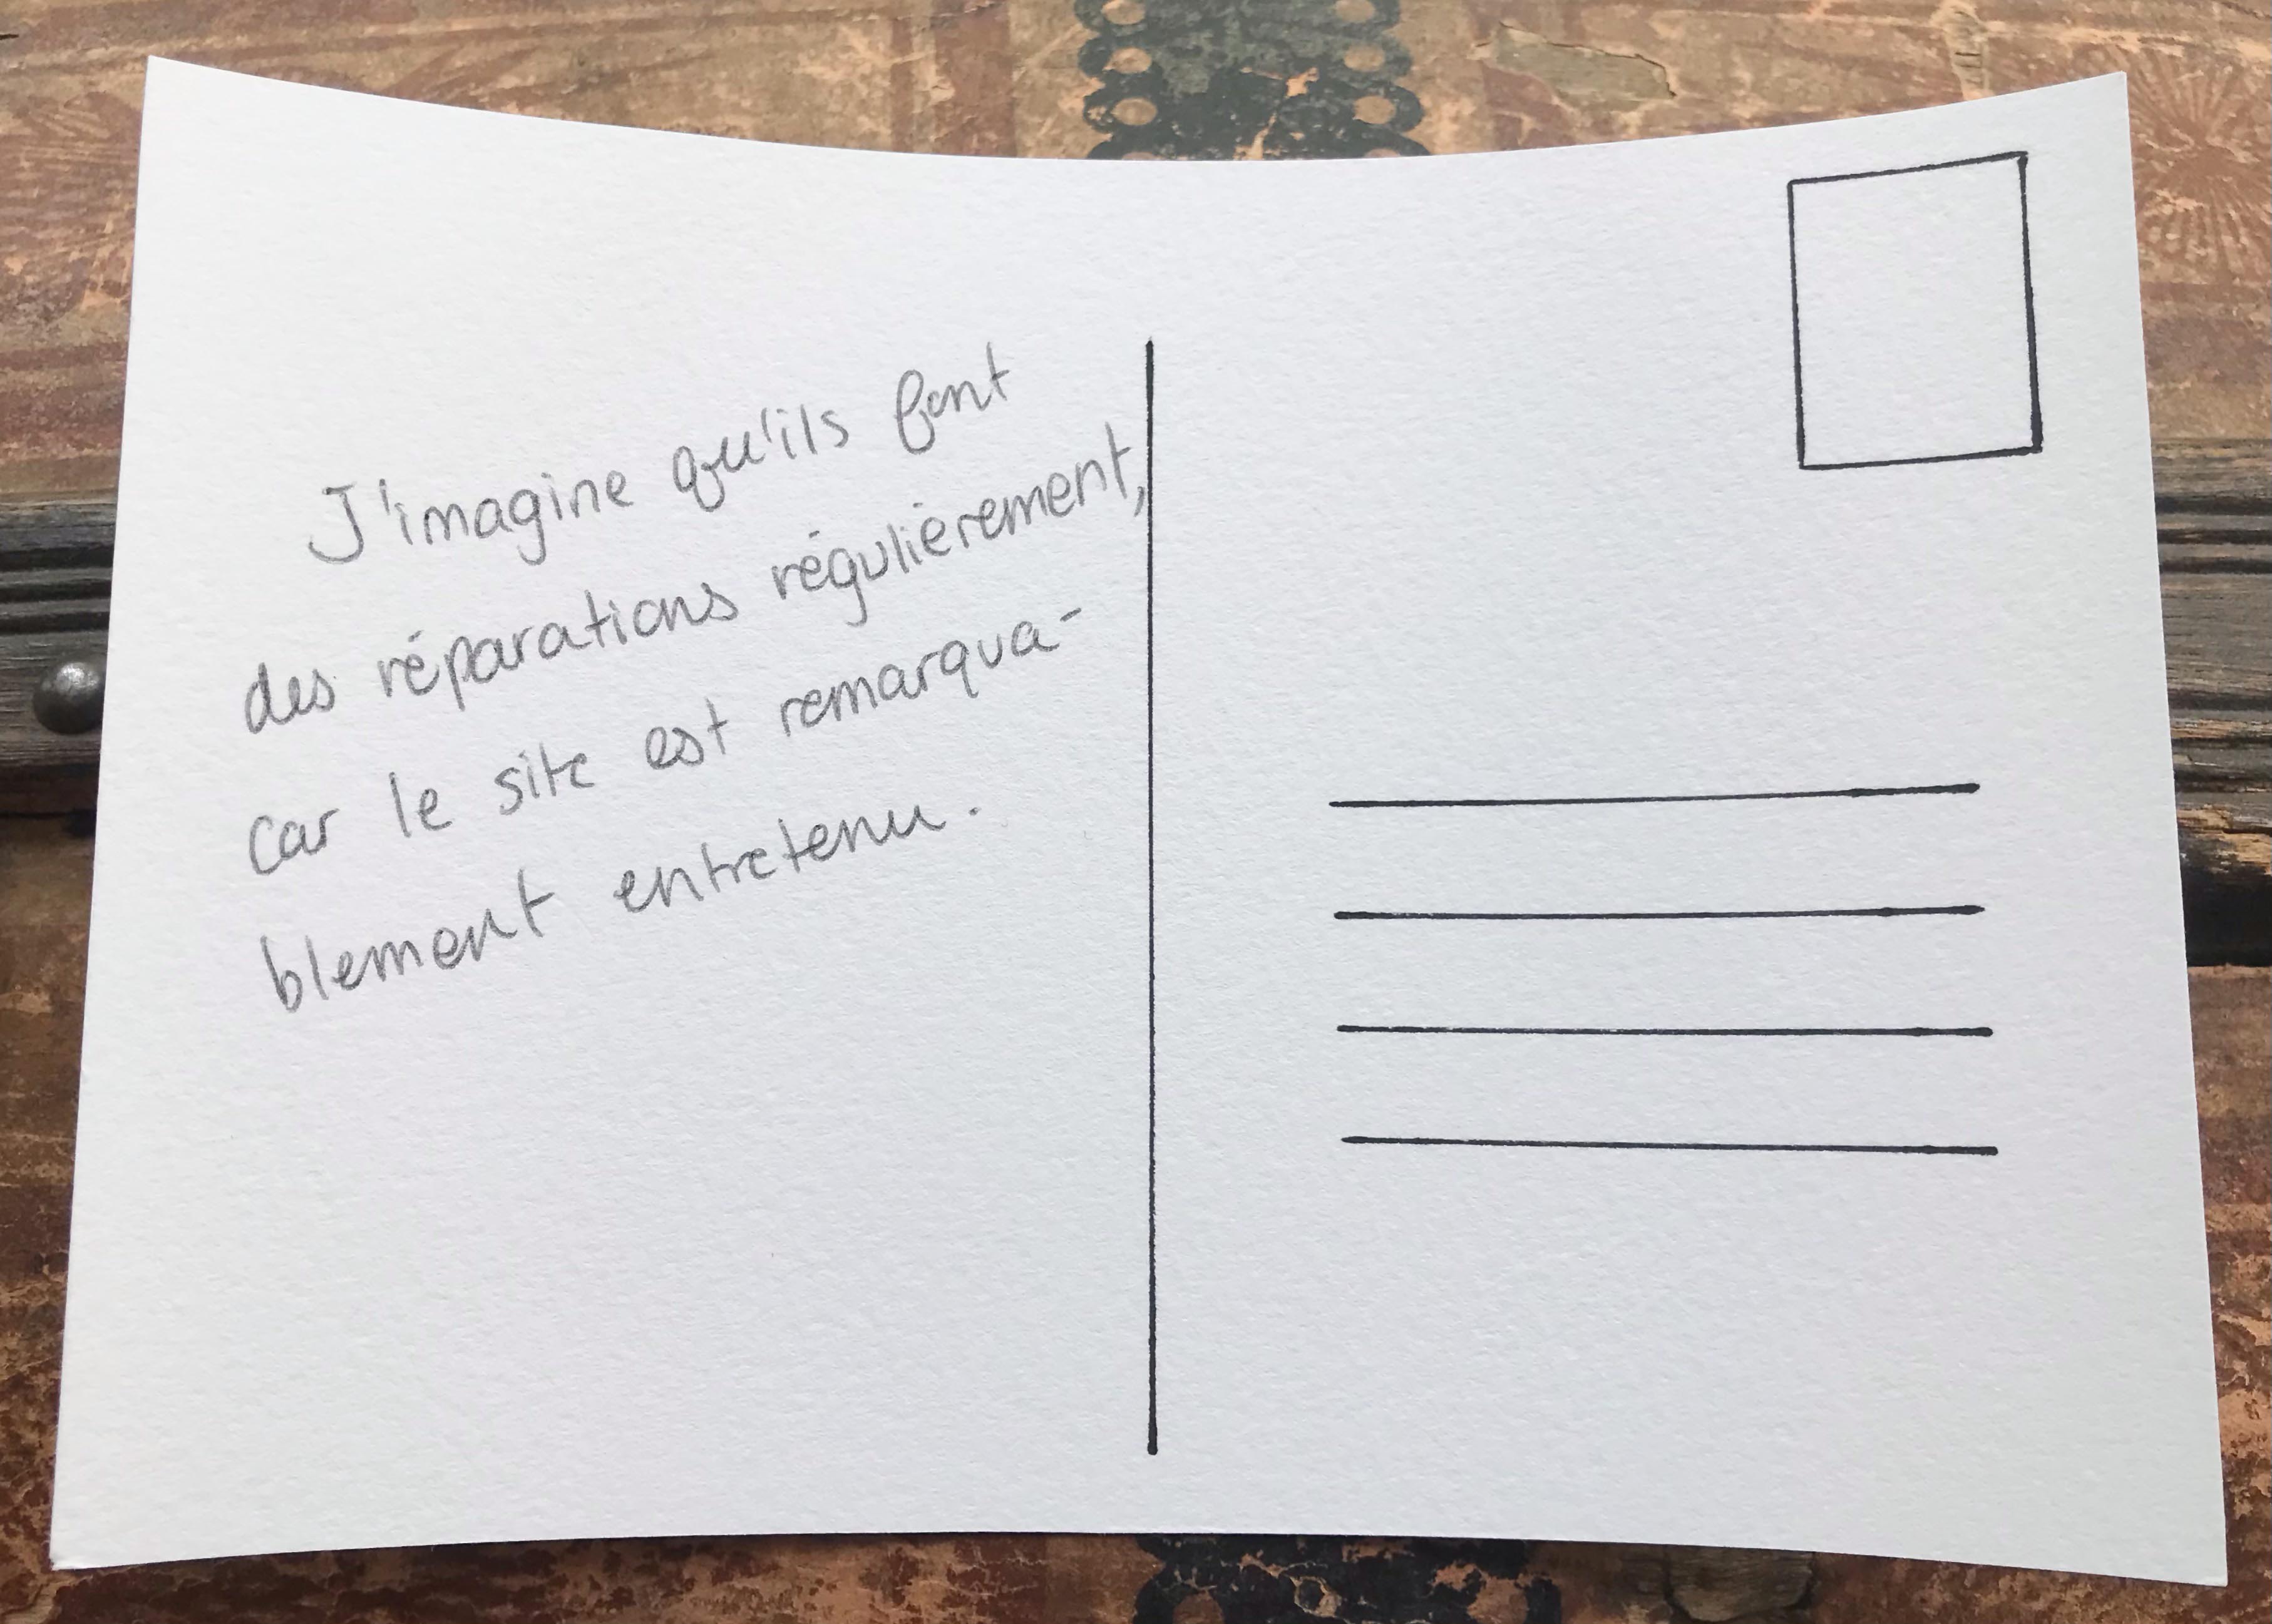 J'imagine qu'ils font
des réparations régulièrement,
car le site est remarqua-
blement entretenu.